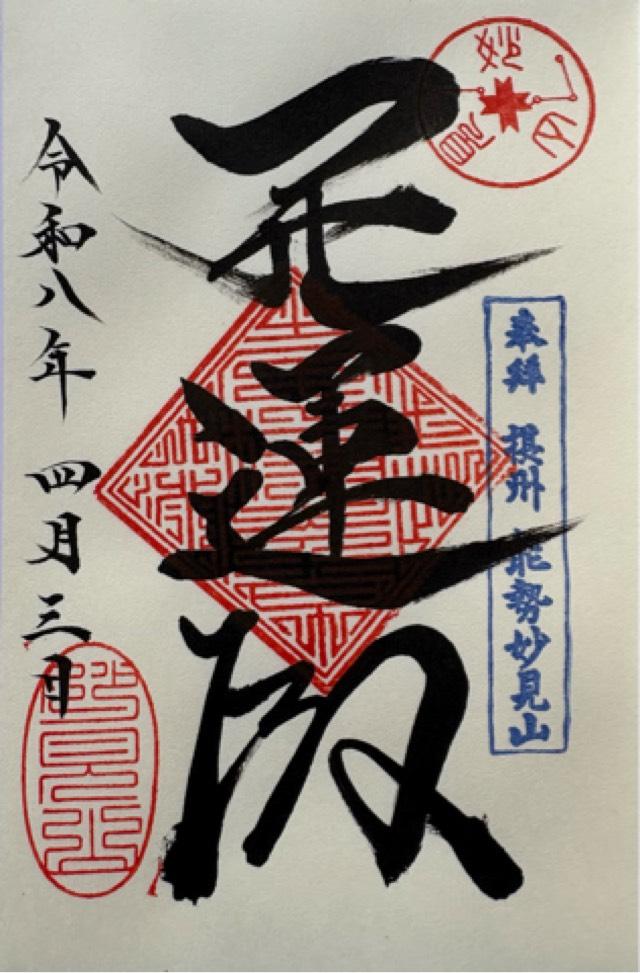 奉拝 摂州 能勢妙見山
開運殿
令和八年 四月三日